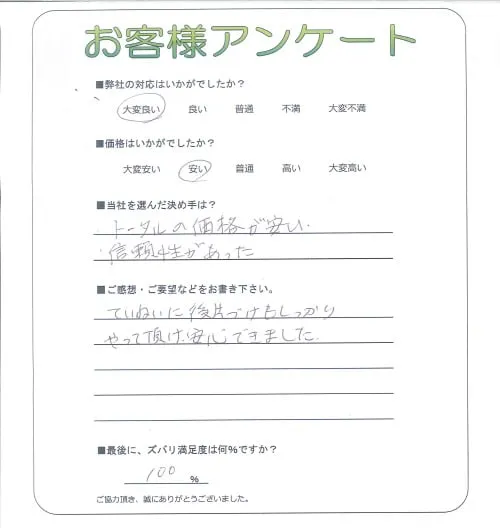 お客様アンケート
■弊社の対応はいかがでしたか？
大変良い 良い 普通 不満 大変不満
■価格はいかがでしたか？
大変安い 安い 普通 高い 大変高い
■当社を選んだ決め手は？
・トータルの価格が安い
・信頼性があった
■ご感想・ご要望などをお書き下さい。
ていねいに後片づけもしっかり
やって頂け、安心できました。
■最後に、ズバリ満足度は何%ですか？
100 %
ご協力頂き、誠にありがとうございました。